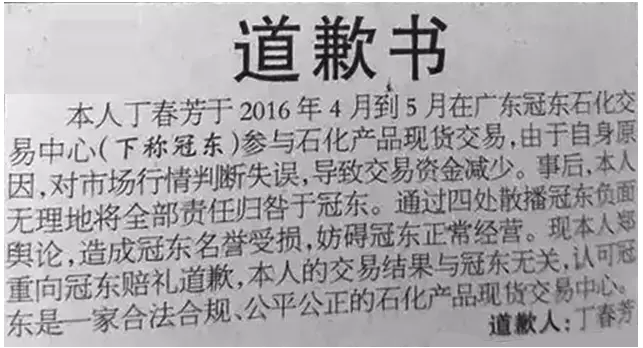 道歉书
本人丁春芳于2016年4月到5月在广东冠东石化交
易中心(下称冠东)参与石化产品现货交易,由于自身原
因,对市场行情判断失误,导致交易资金减少。事后,本人
无理地将全部责任归咎于冠东。通过四处散播冠东负面
舆论,造成冠东名誉受损,妨碍冠东正常经营。现本人郑
重向冠东赔礼道歉,本人的交易结果与冠东无关,认可冠
东是一家合法合规、公平公正的石化产品现货交易中心。
道歉人:丁春芳